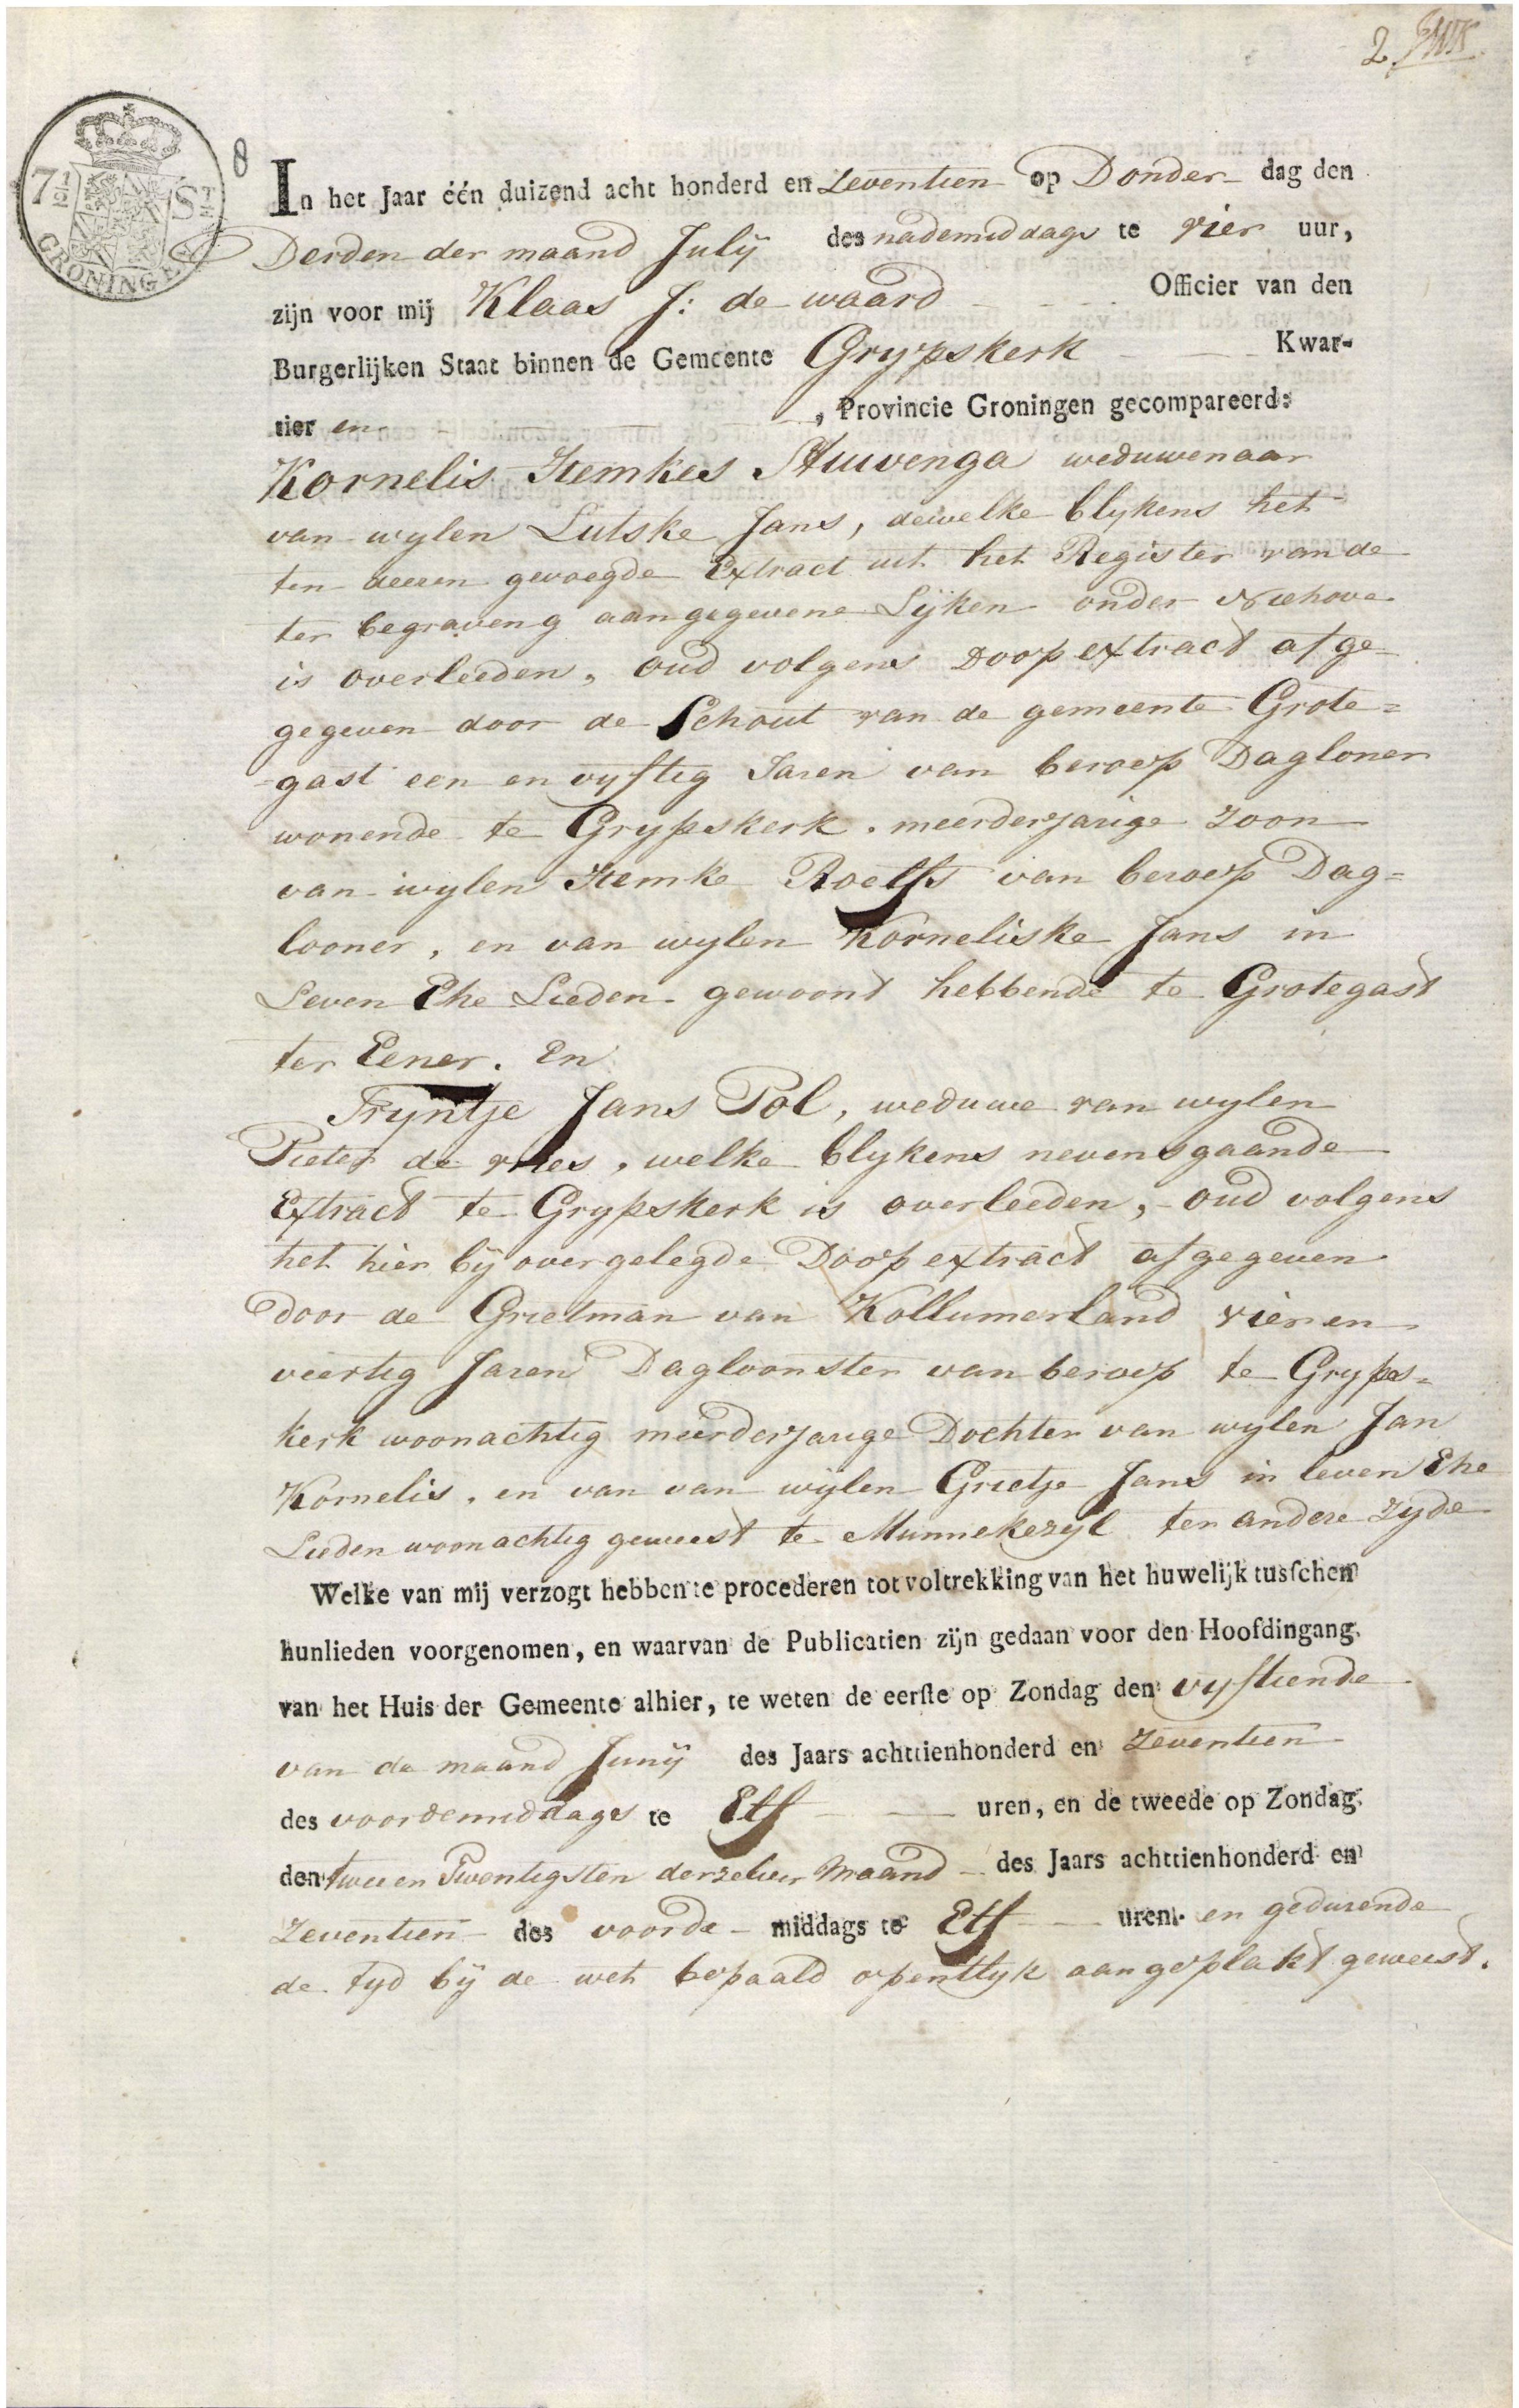 2
7½ St
GRONINGEN
8
In het Jaar één duizend acht honderd en Zeventien op Donder dag den
Derden der maand Julij des nademiddags te vier uur,
zijn voor mij Klaas J: de waard Officier van den
Burgerlijken Staat binnen de Gemeente Grypskerk Kwar-
tier en , Provincie Groningen gecompareerd:
Kornelis Itemkes Stuivenga weduwenaar
van wylen Lutske Jans, dewelke blykens het
ten deezen gevoegde Extract uit het Register van de
ter begraveng aangegevene Lijken onder Niehove
is overleeden, oud volgens Doop extract afge-
gegeven door de Schout van de gemeente Grote=
-gast een en vyftig Jaren van beroep Dagloner
wonende te Grypskerk. meerderjarige Zoon
van wylen Itemke Roelfs van beroep Dag=
looner, en van wylen Korneliske Jans in
Leven Ehe Lieden gewoont hebbende te Grotegast
ter Eener. En
Tryntje Jans Pol, weduwe van wylen
Pieter de vries, welke blykens nevensgaande
Extract te Grypskerk is overleeden, oud volgens
het hier bij overgelegde Doop extract afgegeven
door de Grietman van Kollumerland vier en
veertig Jaren Dagloonster van beroep te Gryps=
kerk woonachtig meerderjarige Dochter van wylen Jan
Kornelis, en van van wijlen Grietje Jans in leven Ehe
Lieden woonachtig geweest te Munnekezyl ter andere Zyde
Welke van mij verzogt hebben te procederen tot voltrekking van het huwelijk tusschen
hunlieden voorgenomen, en waarvan de Publicatien zijn gedaan voor den Hoofdingang
van het Huis der Gemeente alhier, te weten de eerste op Zondag den vyftiende
van de maand Junij des Jaars achttienhonderd en Zeventien
des voordemiddags te Elf uren, en de tweede op Zondag
den twee en Twentigsten derzelver Maand des Jaars achttienhonderd en
Zeventien des voorde middags te Elf uren. en gedurende
de tyd bij de wet bepaald opentlyk aangeplakt geweest.